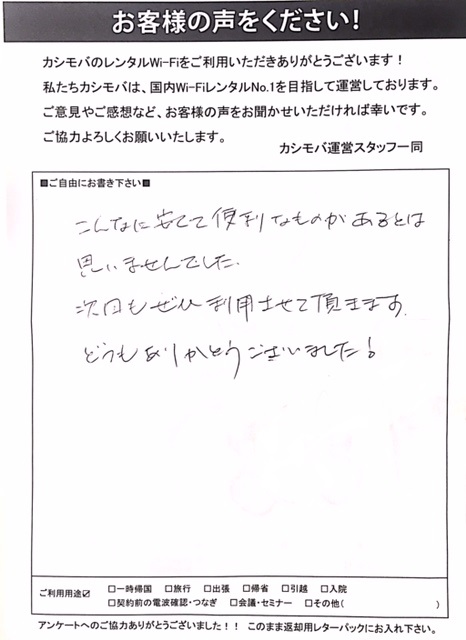 お客様の声をください!
カシモバのレンタルWi-Fiをご利用いただきありがとうございます!
私たちカシモバは、国内Wi-FiレンタルNo.1を目指して運営しております。
ご意見やご感想など、お客様の声をお聞かせいただければ幸いです。
ご協力よろしくお願いいたします。
カシモバ運営スタッフ一同
■ご自由にお書き下さい■
こんなに安くて便利なものがあるとは
思いませんでした.
次回もぜひ利用させて頂きます.
どうもありがとうございました!
ご利用用途☑ □一時帰国 □旅行 □出張 □帰省 □引越 □入院
□契約前の電波確認・つなぎ □会議・セミナー □その他( )
アンケートへのご協力ありがとうございました!! このまま返却用レターパックにお入れ下さい。